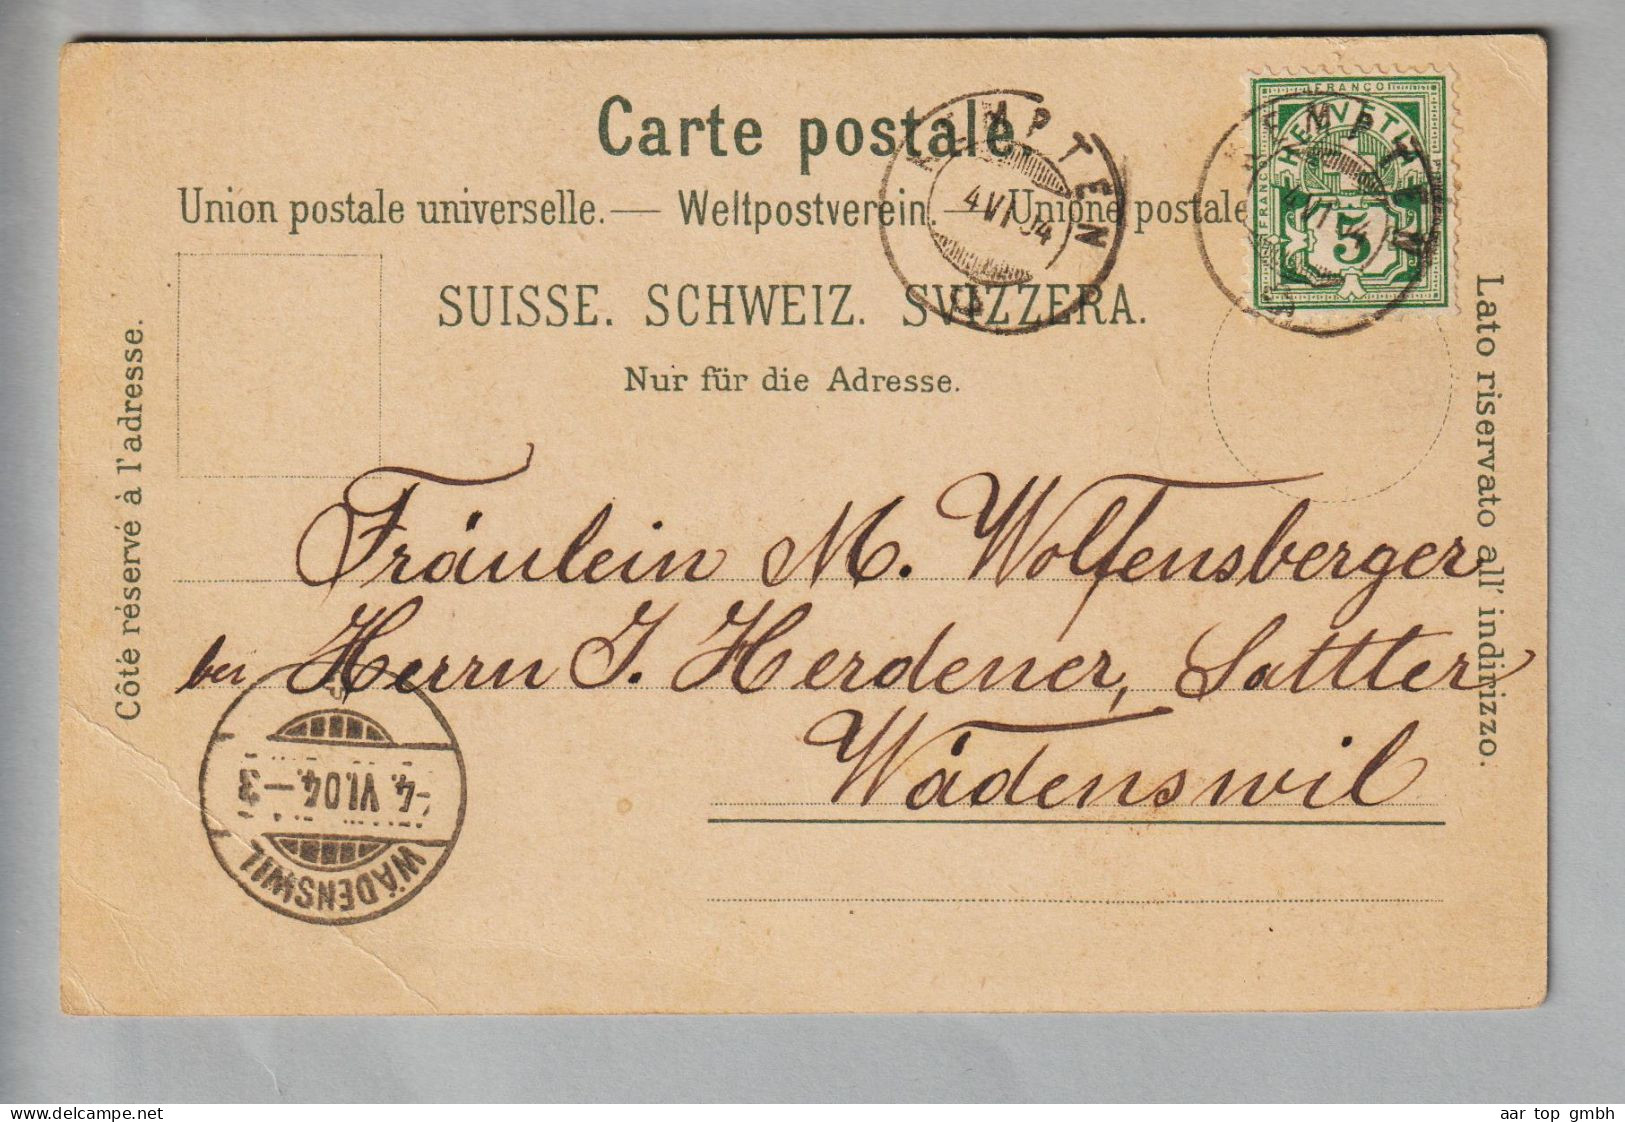 Carte postale.
Union postale universelle. — Weltpostverein. — Unione postale
SUISSE. SCHWEIZ. SVIZZERA.
Nur für die Adresse.
Côté réservé à l'adresse.
Lato riservato all' indirizzo.
KEMPTEN
4 VI 04
FRANCO
FRANCO
HELVETIA
5
KEMPTEN
4 VI 04
Fräulein M. Wolfensberger
bei Herrn J. Herdener, Sattler
Wädenswil
-4. VI. 04. – 3
WÄDENSWIL
aar top gmbh
www.delcampe.net